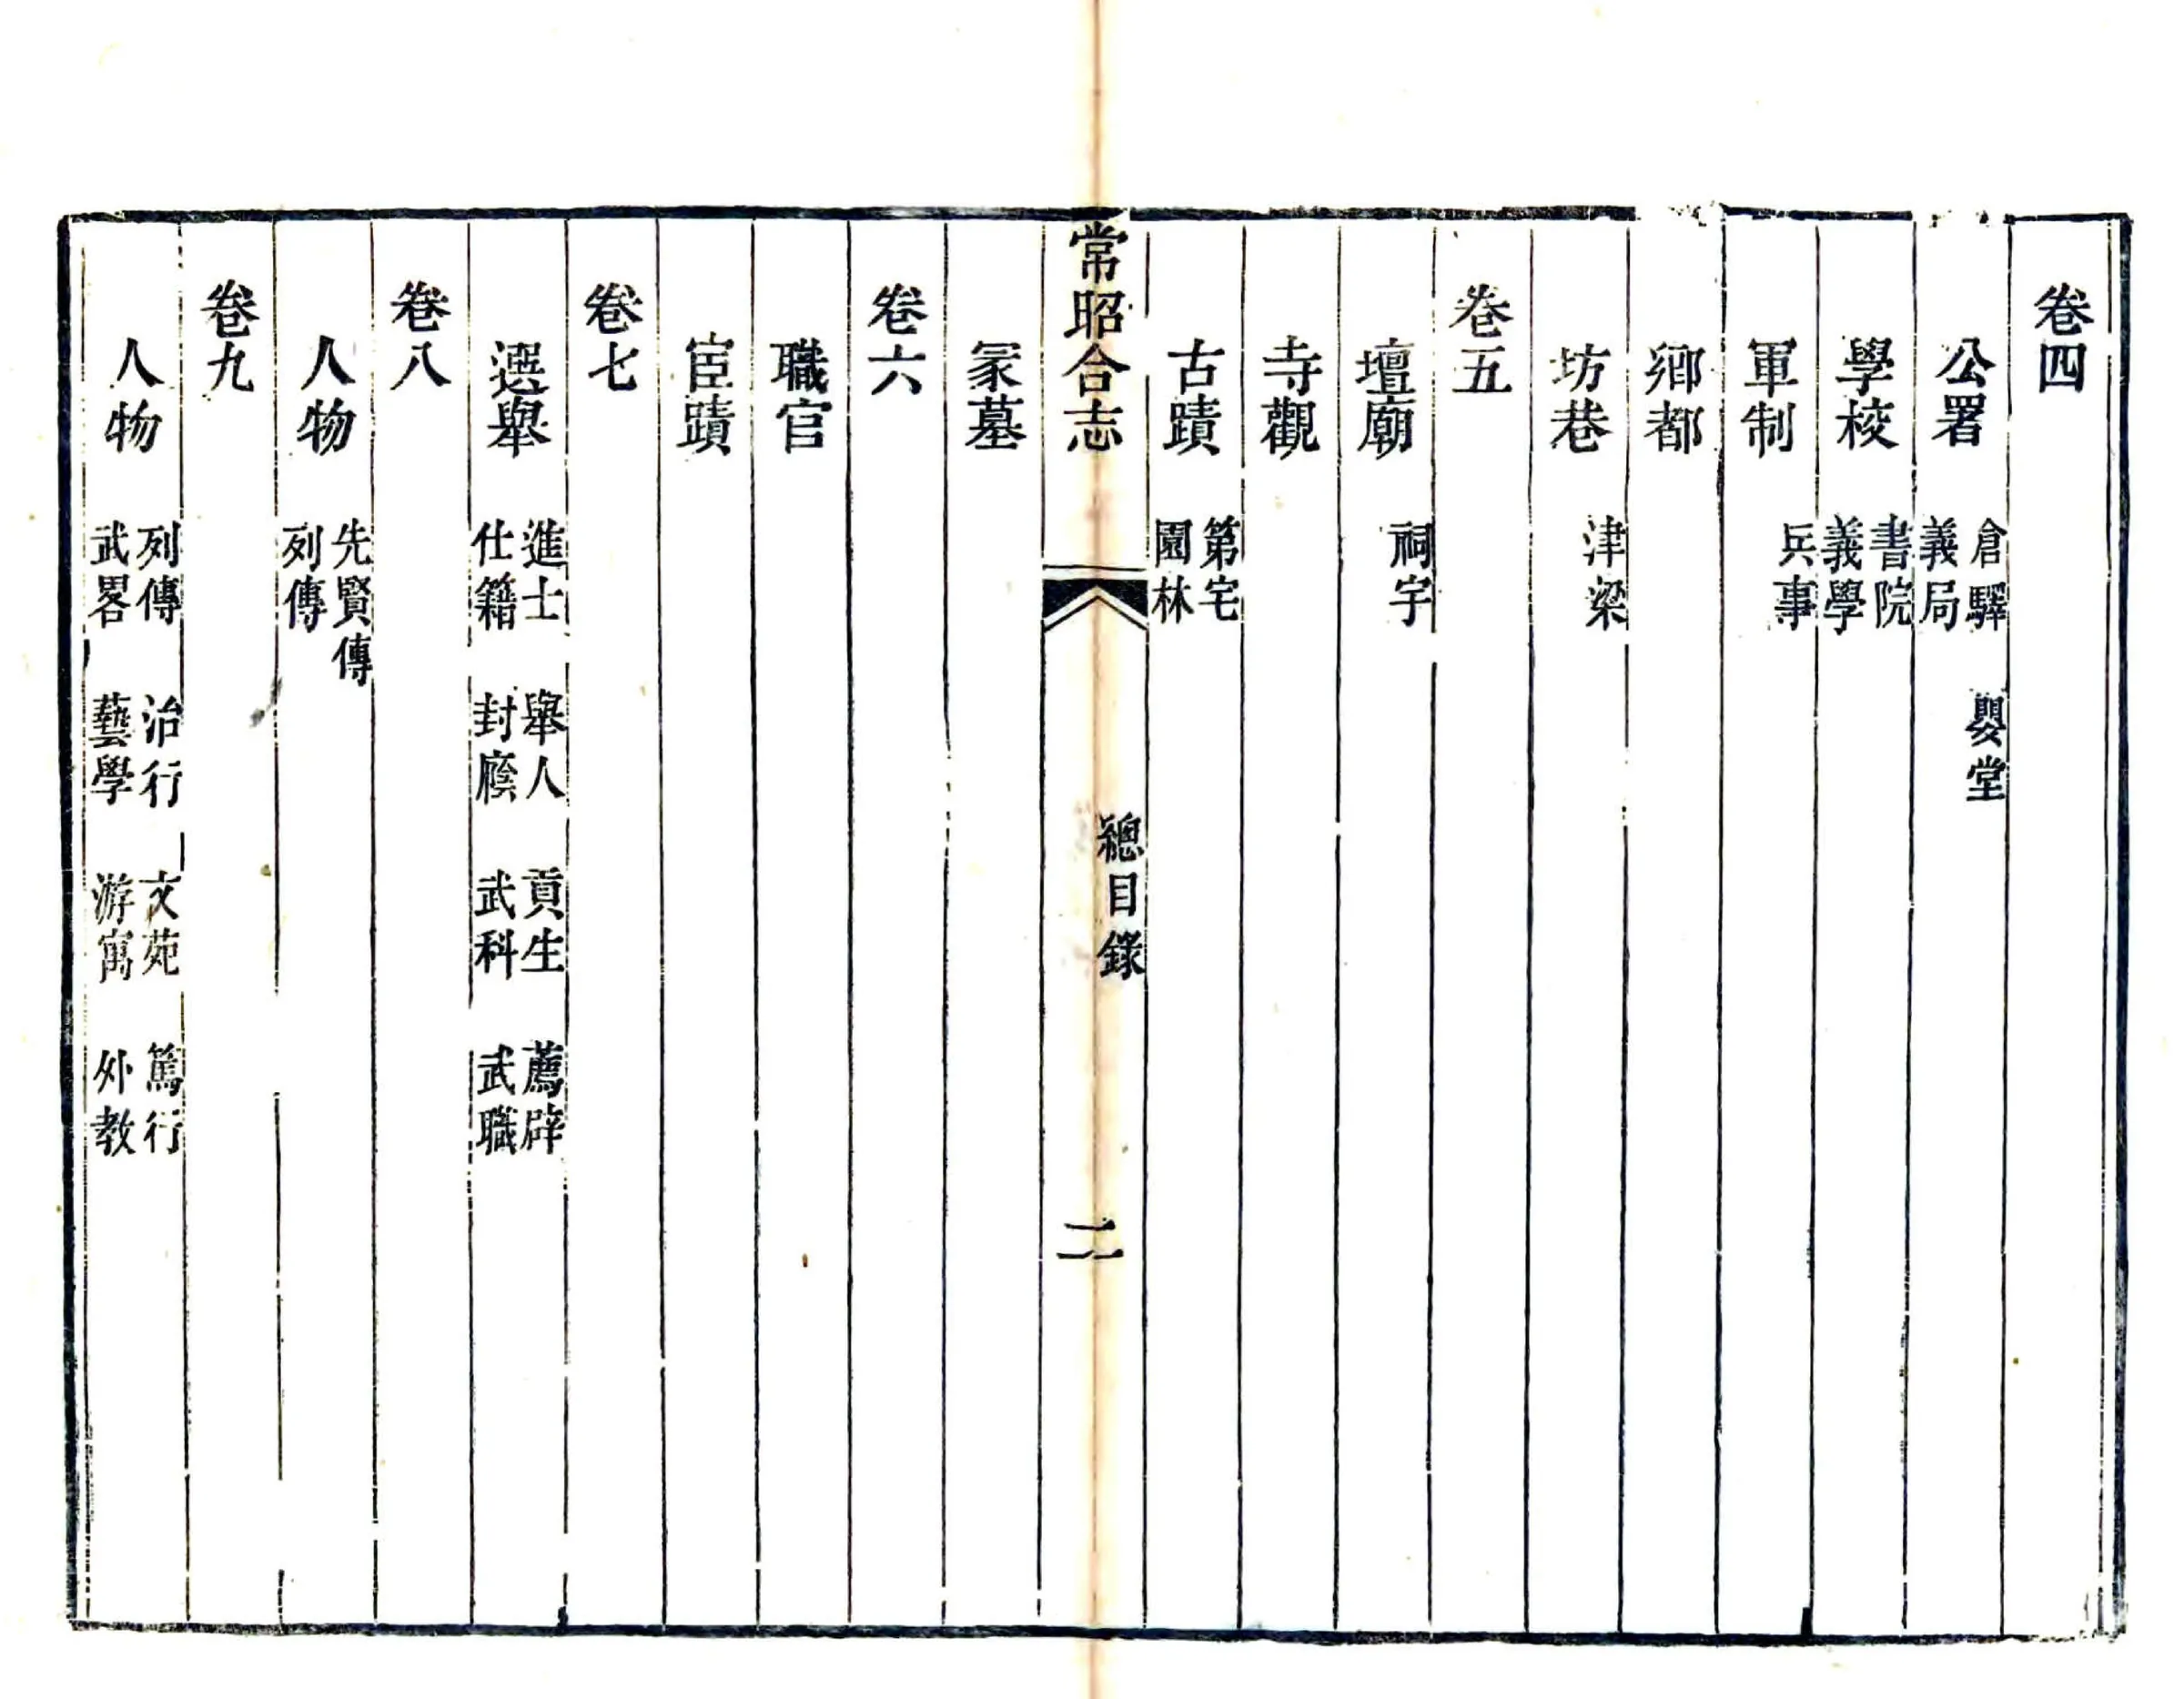 卷四
公署 倉驛 嬰堂 義局
學校 書院 義學
軍制 兵事
鄉都
坊巷 津梁
卷五
壇廟 祠宇
寺觀
古蹟 第宅 園林
常昭合志 總目錄 二
冢墓
卷六
職官
宦蹟
卷七
選舉 進士 舉人 貢生 薦辟 仕籍 封廕 武科 武職
卷八
人物 先賢傳 列傳
卷九
人物 列傳 治行 文苑 篤行 武畧 藝學 游寓 外教